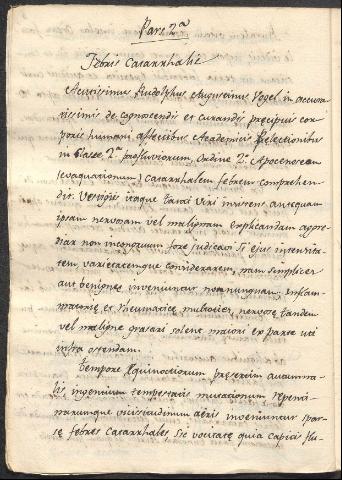 Pars 2ª
Febris Catarrhalis
Acutissimus Rudolphus Augustinus Vogel in accura
tissimis de cognoscendis et curandis præcipuis cor
poris humani affectibus Academicis Prælectionibus
in Classe 2ª profluviorum, ordine 2º Apocenoseon
(evacuationum) Catarrhalem febrem comprehen-
dit. Vestigiis itaque tanti viri insistens antequam
ipsam nervosam vel malignam explicandam aggre
diar non incongruum fore judicavi si ejus intensita
tem, varietatemque considerarem, nam simplices
aut benignę inveniuntur nonnunquam, inflam
matorię et rheumaticę multoties, nervosę tandem
vel malignę grasari solent maiori ex parte uti
infra ostendam.
Tempore Æquinoctiorum præsertim autumna-
lis ingentium tempestatis mutationum repenti-
narumque vicissitudinum aëris inveniuntur spar-
sę febres Catarrhales sic vocitatę quia capitis flu-